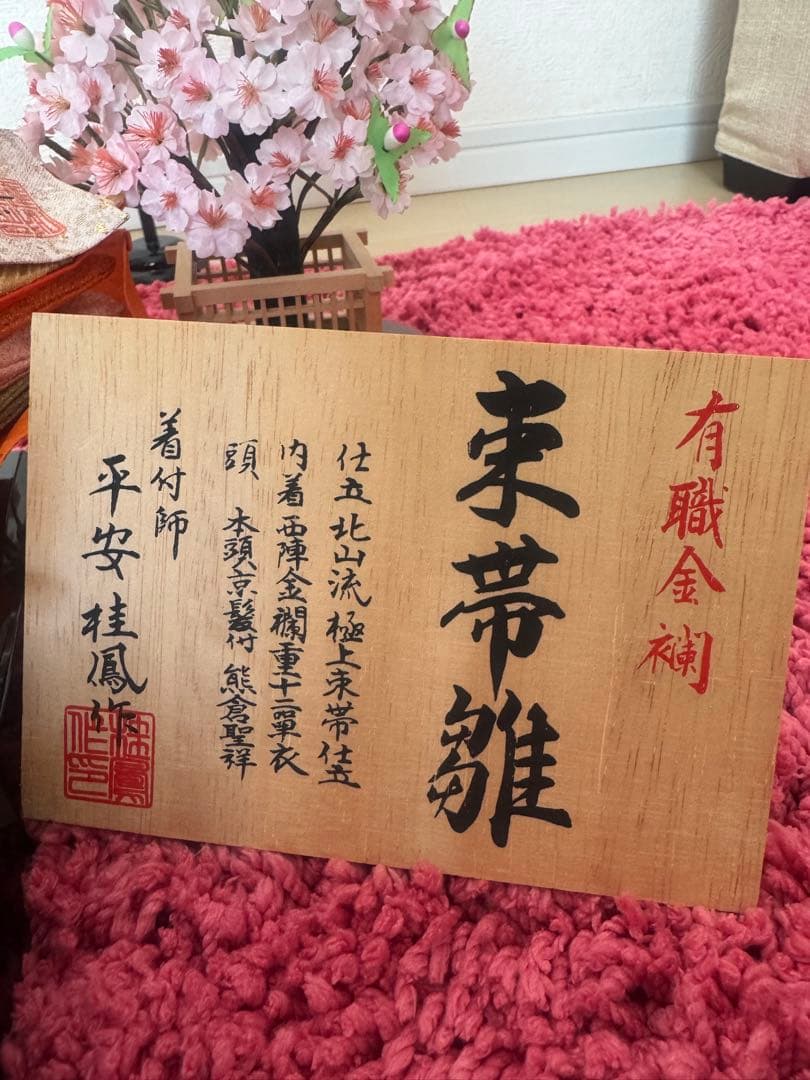 有職金襴
束帯雛
仕立 北山流極上束帯仕立
内着 西陣金襴重十二單衣
頭 本頭京髪付 熊倉聖祥
着付師
平安 桂鳳作